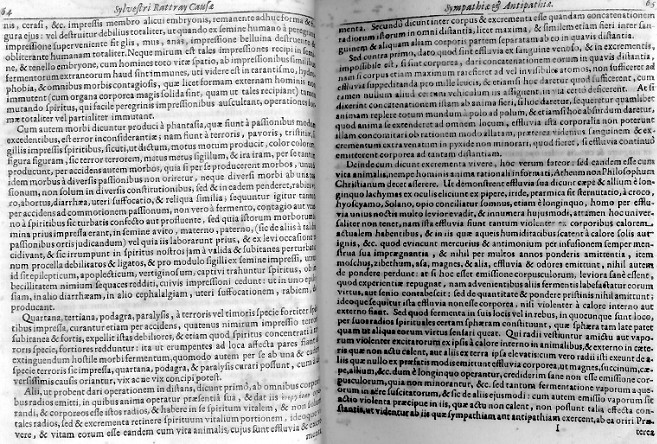 64 Sylvestri Rattray Causæ
nis, cerasi, &c. impressis membro alicui embryonis, remanente adhuc forma & fi-
gura ejus: vel destruitur debilius totaliter, ut quando ex semine humano à peregrina
impressione superveniente fit glis, mus, rana, impressione belluina
obliterante humanam totaliter. Nequo mirum est tales impressiones recipi in semi-
ne, & tenello embryone, cum homines toto vitæ spatio, ab impressionibus similibus
fermentorum extraneorum haud sint immunes, uti videre est in tarantismo, hydro-
phobia, & omnibus morbis contagiosis, quæ licet formam externam hominis non
immutent (cum organa corporea magis solida sint, quam ut tales recipiant) tamen
mutando spiritus, qui facile peregrinis impressionibus auscultant, operationes for-
mæ totaliter vel partialiter immutant.
Cum autem morbi dicuntur produci à phantasia, quæ fiunt à passionibus modum
excedentibus, est error inconsiderantiæ: nam fiunt à terroris, pavoris, tristitiæ, si-
gillis impressis spiritibus, sicuti, ut dictum, motus motum producit, color colorem,
figura figuram, sic terror terrorem, metus metus sigillum, & ira iram, per se tantum
producunt, per accidens autem morbos, quia si per se producerent morbos, unus
idem morbus à diversis passionibus non oriretur, neque diversi morbi ab una pas-
sione, non solum in diversis constitutionibus, sed & in eadem penderet, rabies, fu-
ror, abortus, diarrhæa, uteri suffocatio, & reliqua similia; sequuntur igitur tantum
per accidens ad commotionem passionum, non vero à fermento, contagio aut vene-
no à spiritibus sic turbatis confecto aut profluente, sed quia istorum morborum se-
mina prius impressa erant, in semine avito, materno, paterno, (sic de aliis à talibus
passionibus ortis judicandum) vel quia iis laborarunt prius, & ex levi occasione re-
cidivant, & sic irrumpunt in spiritus nostros jam à valida & subitanea perturbatio-
num procella debilitatos & ligatos, & pro modulo sigilli ex semine impressi, unus qui-
id sit epilepticum, apoplecticum, vertiginosum, captivi trahuntur spiritus, ob im-
becillitatem nimium sequaces redditi, cuivis impressioni cedunt: ut in uno epilep-
siam, in alio diarrhæam, in alio cephalalgiam, uteri suffocationem, rabiem, &c.
producant.
Quartana, tertiana, podagra, paralysis, à terroris vel timoris specie fortiter spiri-
tibus impressa, curantur etiam per accidens, quatenus nimirum impressio terroris
subitanea & fortis, expellit ista debiliora, & etiam quod spiritus concentrati à ter-
roris specie, fortiores redduntur: ita ut erumpentes ad loca affecta pares fiant
extinguendum hostile morbi fermentum, quomodo autem per se ab una & eadem
specie terroris sic impressa, quartana, podagra, & paralysis curari possunt, cum à di-
versissimis causis oriantur, vix ac ne vix concipi potest.
Alii, ut probent dari operationem in distans, dicunt primò, ab omnibus corpori-
bus radios emitti, in quibus anima operatur præsentiâ suâ, & dat iis
randi, & corporeos esse istos radios, & habere in se spiritum vitalem, & non solum
tales radios, sed & excrementa retinere spirituum vitalium portionem, ideoque vi-
vere, & vitam eorum esse eandem cum vita animalis, cujus sunt effluvia & excre-
menta.
Sympathiæ & Antipathiæ. 65
menta. Secundò dicunt inter corpus & excrementa esse quandam concatenationem
radiorum istorum in omni distantia, licet maxima, sicuti asserit fieri inter san-
guinem & aliquam aliam corporis partem separatam ab eo in quavis distantia.
Sed contra primo, dato quod fint effluvia ex sanguine venoso, & in excrementis,
impossibile est, si fint corporea, dari concatenationem eorum in quavis distantia,
nam si corpus etiam maximum rarefieret ad vel invisibiles atomos, non haberet ad
effluvia suppeditanda pro mille leucis, & etiamsi hoc daretur quod sufficerent, cum
tamen nullum aliud certum vehiculum iis assignent, in via certò deficerent. At si
dixerint concatenationem istam ab anima fieri, si hoc daretur, sequeretur quamlibet
animam replere totum mundum à polo ad polum, & etiamsi hoc absurdum daretur,
quod anima se extenderet ad omnem locum, effluvia ista corporalia non poterunt
illam concomitari ob rationem modò allatam, præterea videmus sanguinem & ex-
crementum extra venatum in pyxide non minorari, quod fieret, si effluvia continuò
emitterent corpora ad tantam distantiam.
Deinde cum dicunt excrementa vivere, hoc verum fateor: sed eandem esse cum
vita animalis, nempe hominis anima rationali informati, Atheum non Philosophum
Christianum decet asserere. Ut demonstrent effluvia sua dicunt cæpe & allium è lon-
ginquo lachrymas ex oculis elicere: ex pipere, iride, ptarmica fit sternutatio, à croco,
hyoscyamo, Solano, opio conciliatur somnus, etiam è longinquo, homo per efflu-
via unius noctis multò levior evadit, & innumera hujusmodi, attamen hoc univer-
saliter non tenet, nam ista effluvia fiunt tantum violenter ex corporibus calorem
actualem habentibus, & in iis quæ aquosi humiditatibus scatent à calore solis aut
ignis, &c. quod evincunt mercurius & antimonium per infusionem semper men-
struum sua imprægnantia, & nihil per multos annos ponderis amittentia, item
moschus, zibethum, asa, magnes, & alia, effluvia & odores emittunt, nihil autem
de pondere perdunt: at si hoc esset emissione corpusculorum, leviora sanè essent,
quod experientiæ repugnat, nam advenientibus aliis fermentis labefactatur eorum
virtus, aut senio contabescit: sed de quantitate & pondere pristinis nihil amittunt:
ideoque sequitur ista effluvia non esse corporea, nisi violenter à calore interno aut
externo fiant. Sed quod fermenta in suis locis vel in rebus, in quocunque sunt loco,
per suos radios spirituales certam sphæram constituunt, quæ sphæra tam late patet
quam ut aliqua eorum virtus sensari queat. Qui radii vestiuntur amictu aut vapo-
rum violenter excitatorum ex ipsis à calore interno in animalibus, & externo in cæte-
ris quæ non actu calent, aut aliis extra ipsa elevatis: cum vero radii isti exeunt de a-
liis quæ nullo ex præstatis modis emittunt effluvia corporea, ut magnes, succinum, cæ-
pe, alium, &c. dum è longinquo operantur, crediderim sanè non esse emissione cor-
pusculorum, quia non minorantur, &c. sed tantum fermentatione vaporum aquo-
sorum in situ oriri sufficere, & sic de aliis ejusmodi: cum autem emissio vaporum sit
actio violenta præcipue in iis, quæ actu non calent, non potuit ista esse adeo præ-
stantis, ut videntur ab iis quæ sympathiam aut antipathiam exercent, ab ea oriri. Præ-
I terea